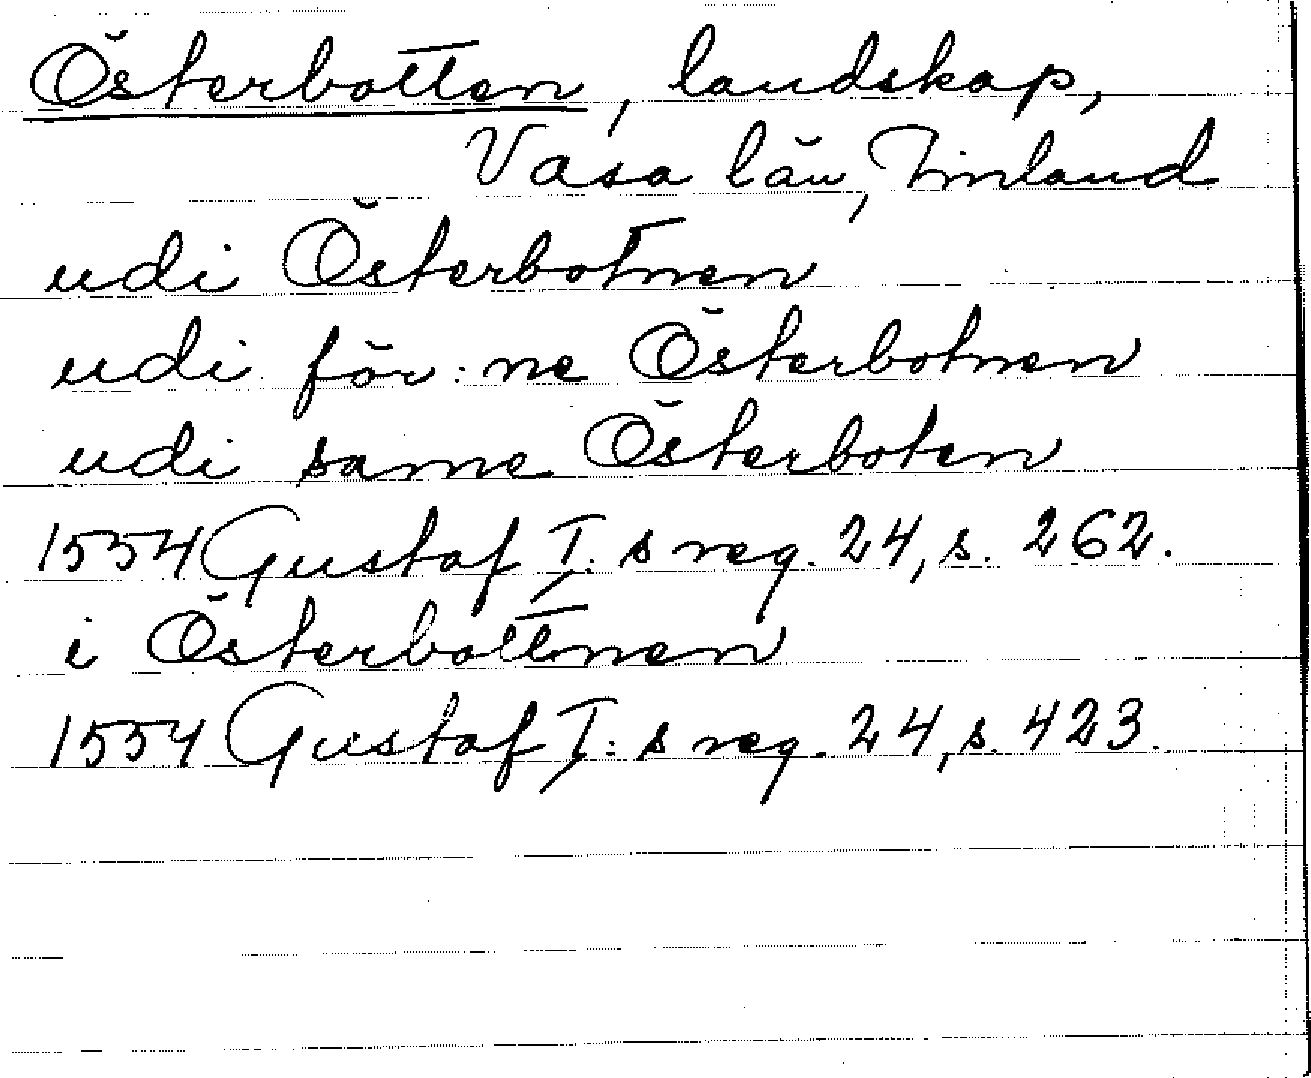 Österbotten, landskap,
Vasa län, Finland
udi Österbotnen
udi för:ne Österbotnen
udi same Österboten
1554 Gustaf I:s reg. 24, s. 262.
i Österbottnen
1554 Gustaf I:s reg. 24, s. 423.